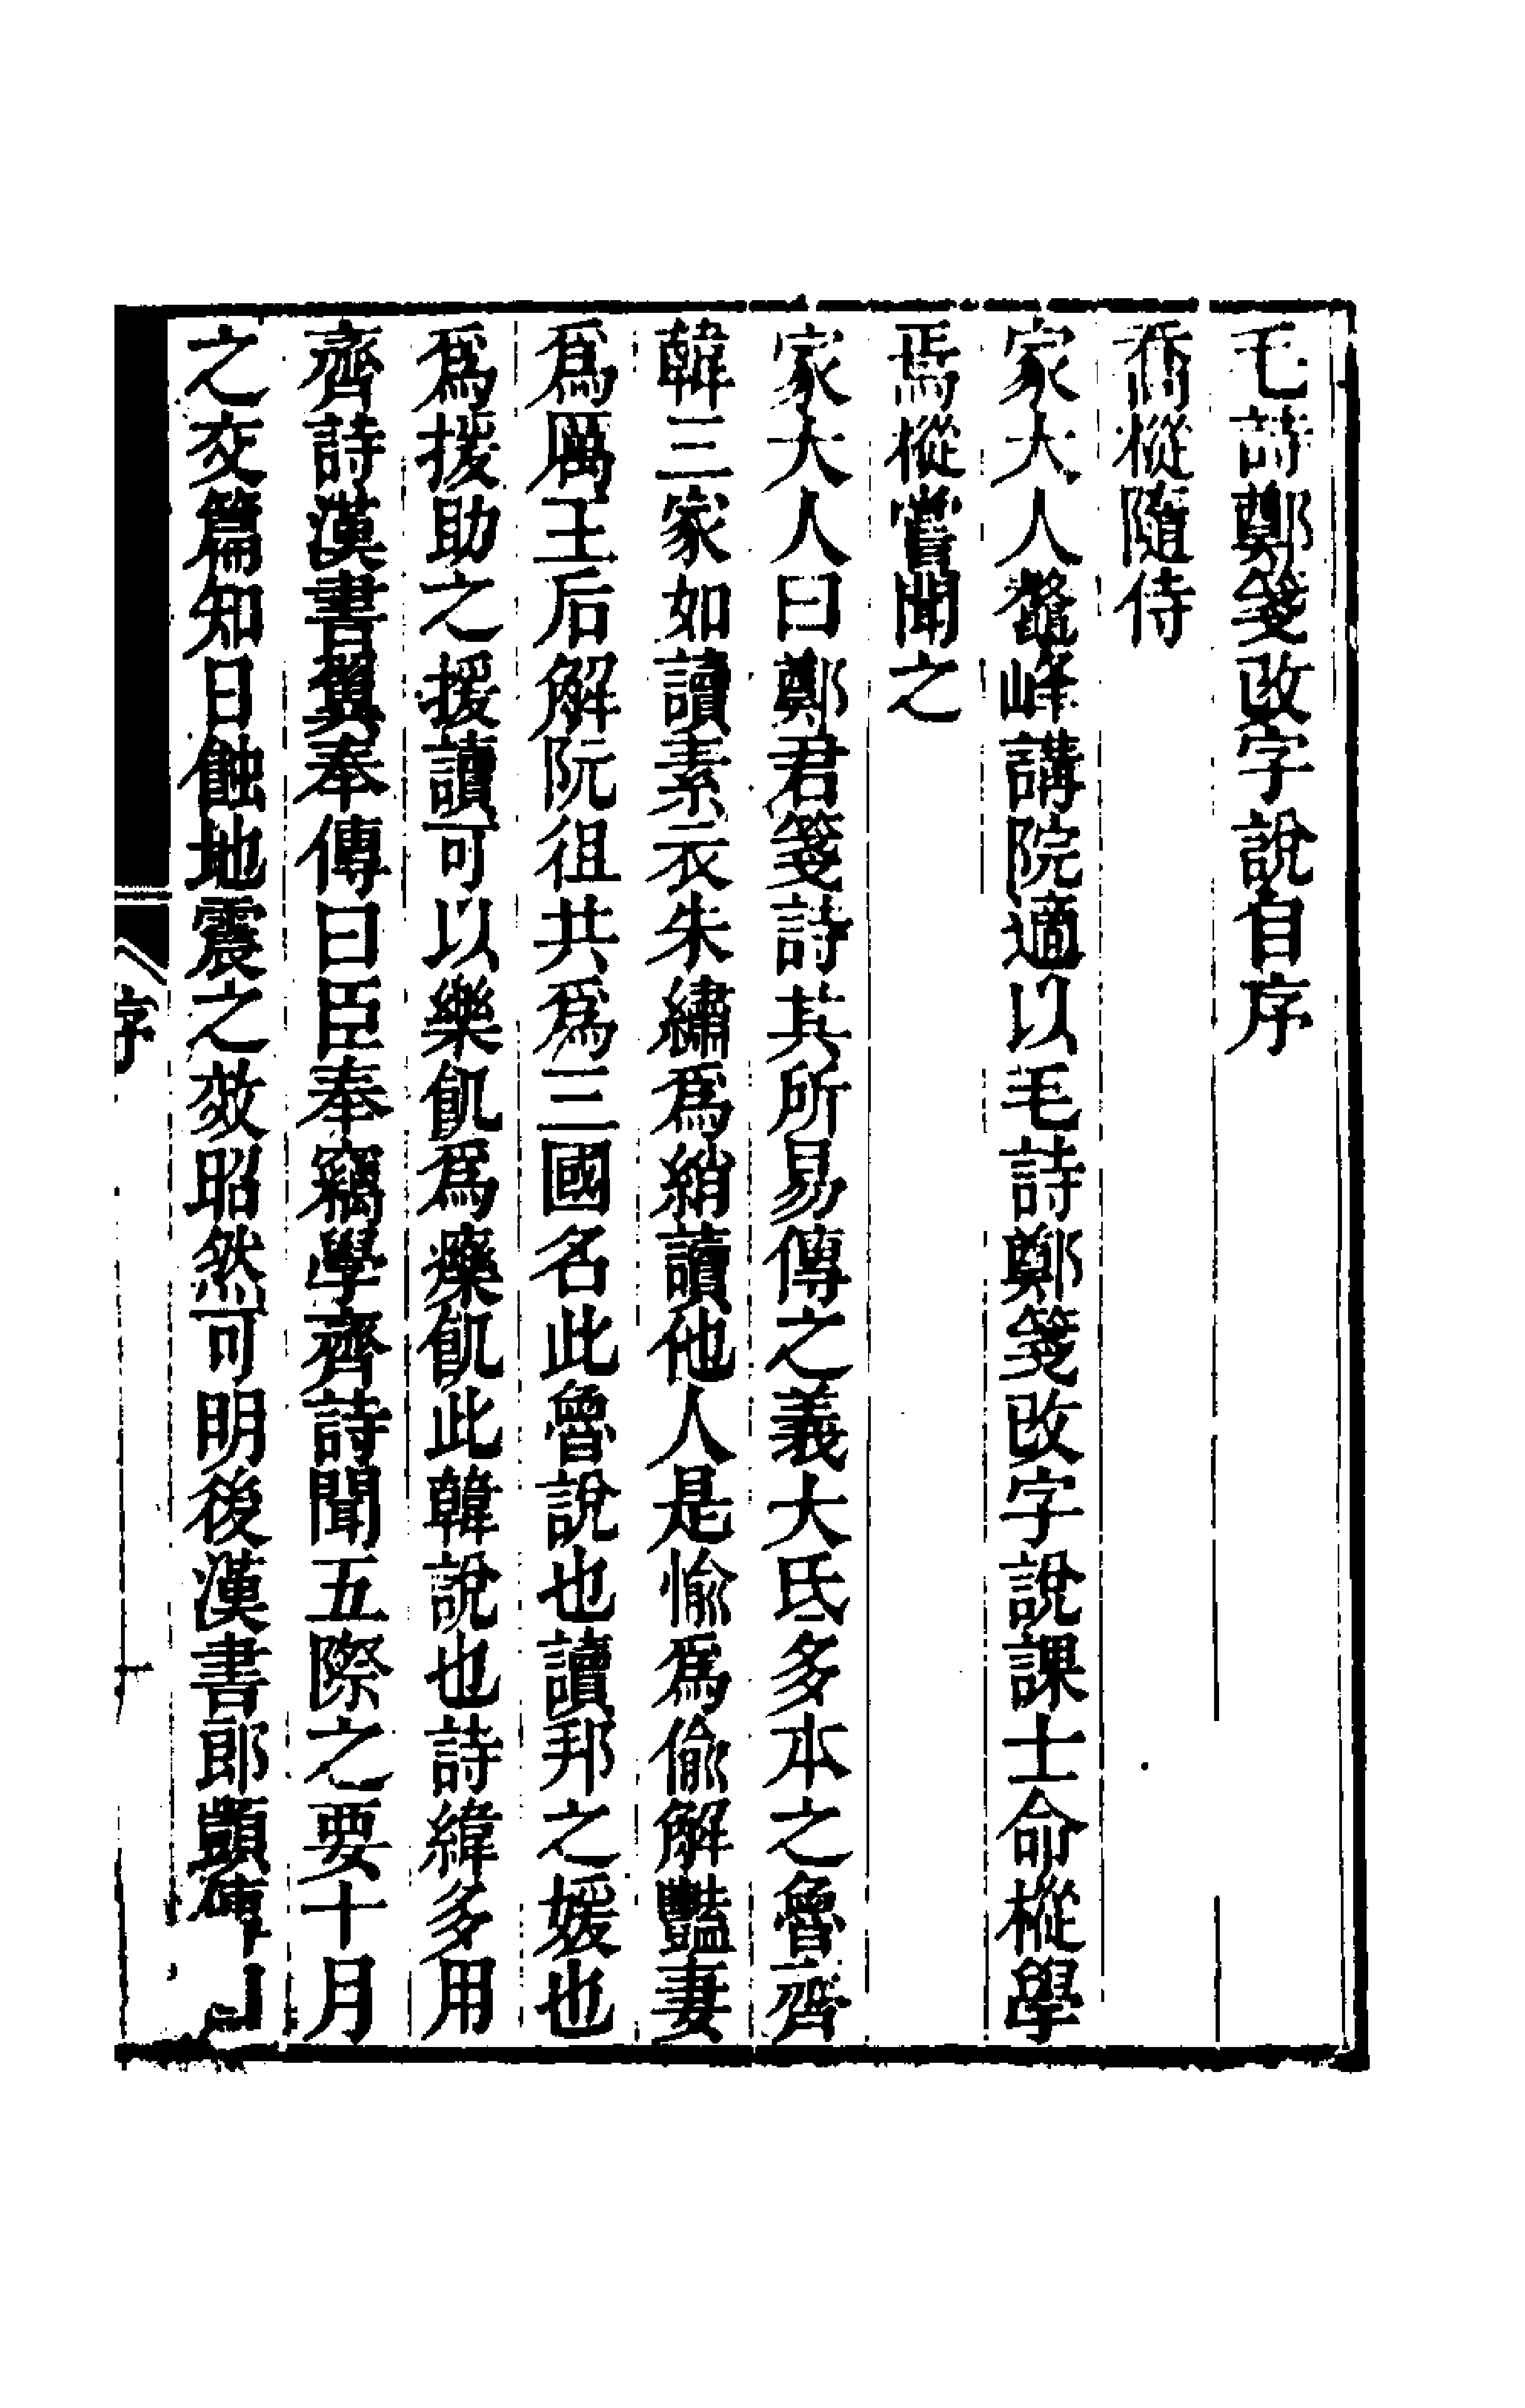 毛詩鄭箋改字說自序
喬樅隨侍
家大人鼇峰講院適以毛詩鄭箋改字說課士命樅學
焉樅嘗聞之
家大人曰鄭君箋詩其所易傳之義大氐多本之魯齊
韓三家如讀素衣朱繡爲綃讀他人是愉爲偷解豔妻
爲厲王后解阮徂共爲三國名此魯說也讀邦之媛也
爲援助之援讀可以樂飢爲𤻲飢此韓說也詩緯多用
齊詩漢書翼奉傳曰臣奉竊學齊詩聞五際之要十月
之交篇知日蝕地震之效昭然可明後漢書郎顗
序